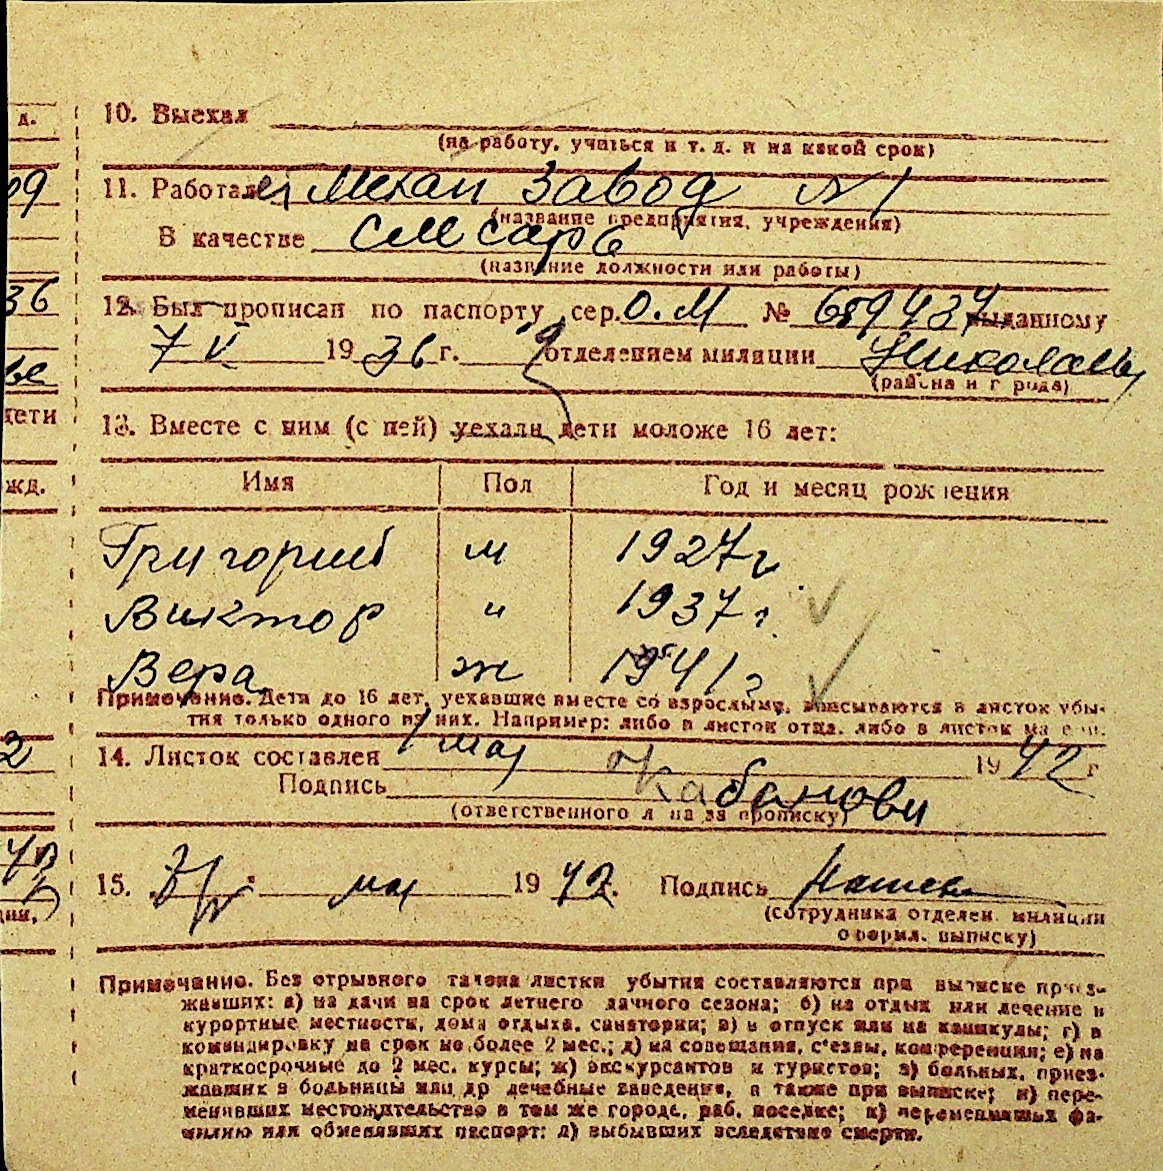 д.
10. Выехал
(на работу, учиться и т. д. и на какой срок)
09
11. Работает Механ Завод №1
(название предприятия, учреждения)
В качестве слесарь
(название должности или работы)
36
12. Был прописан по паспорту сер. О.М № 689437 выданному
7 V 1936 г. отделением милиции Николаев
(района и города)
дети
13. Вместе с ним (с ней) уехали дети моложе 16 лет:
жд.
Имя Пол Год и месяц рождения
Григорий м 1927 г
Виктор " 1937 г.
Вера ж 1941 г
Примечание. Дети до 16 лет, уехавшие вместе со взрослыми, вписываются в листок убы-
тия только одного из них. Например: либо в листок отца, либо в листок матери.
2
14. Листок составлен 1 мая 1942 г
Подпись
(ответственного лица за прописку)
15. мая 1942. Подпись
(сотрудника отделен. милиции
оформл. выписку)
Примечание. Без отрывного талона листки убытия составляются при выписке приез-
жавших: а) на дачи на срок летнего дачного сезона; б) на отдых или лечение в
курортные местности, дома отдыха, санатории; в) в отпуск или на каникулы; г) в
командировку на срок не более 2 мес.; д) на совещания, с'езды, конференции; е) на
краткосрочные до 2 мес. курсы; ж) экскурсантов и туристов; з) больных, приез-
жавших в больницы или др лечебные заведения, а также при выписке; и) пере-
менивших местожительство в том же городе, раб. поселке; к) переменивших фа-
милию или обменявших паспорт; л) выбывших вследствие смерти.